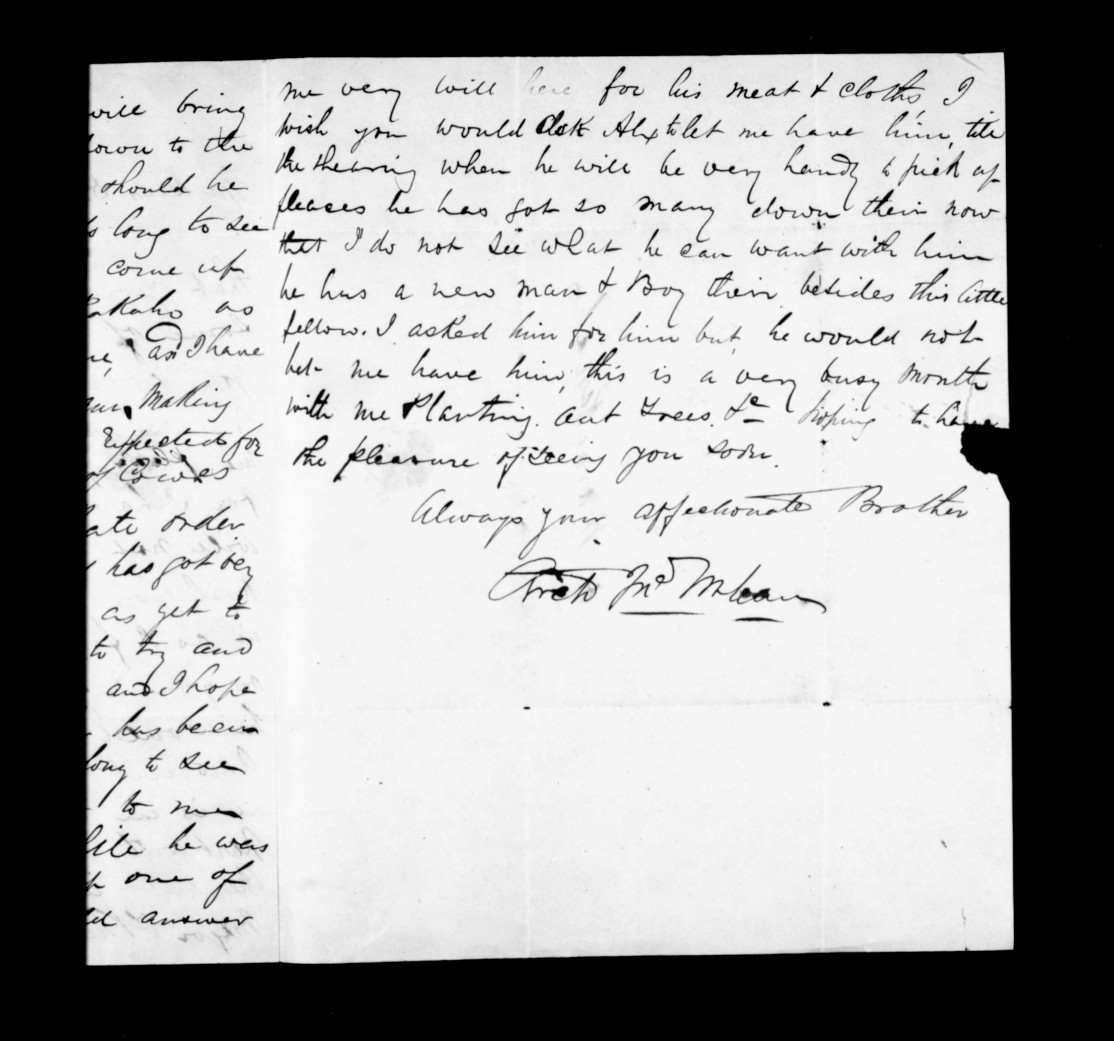 will bring
down to the
should he
long to see
come up
as
and I have
Making
Expected for
of Cows
order
has got
as yet to
to try and
and I hope
has been
long to see
to me
he was
one of
answer
me very will here for his meat & cloths I
wish you would ask Alex to let me have him, till
the shearing when he will be very handy to pick up
fleaces he has got so many down their now
that I do not see what he can want with him
he has a new man & Boy their besides this little
fellow. I asked him for him but he would not
let me have him, this is a very busy month
with me Planting out Trees &c hoping to have
the pleasure of seeing you soon.
Always your affectionate Brother
Archd McLean